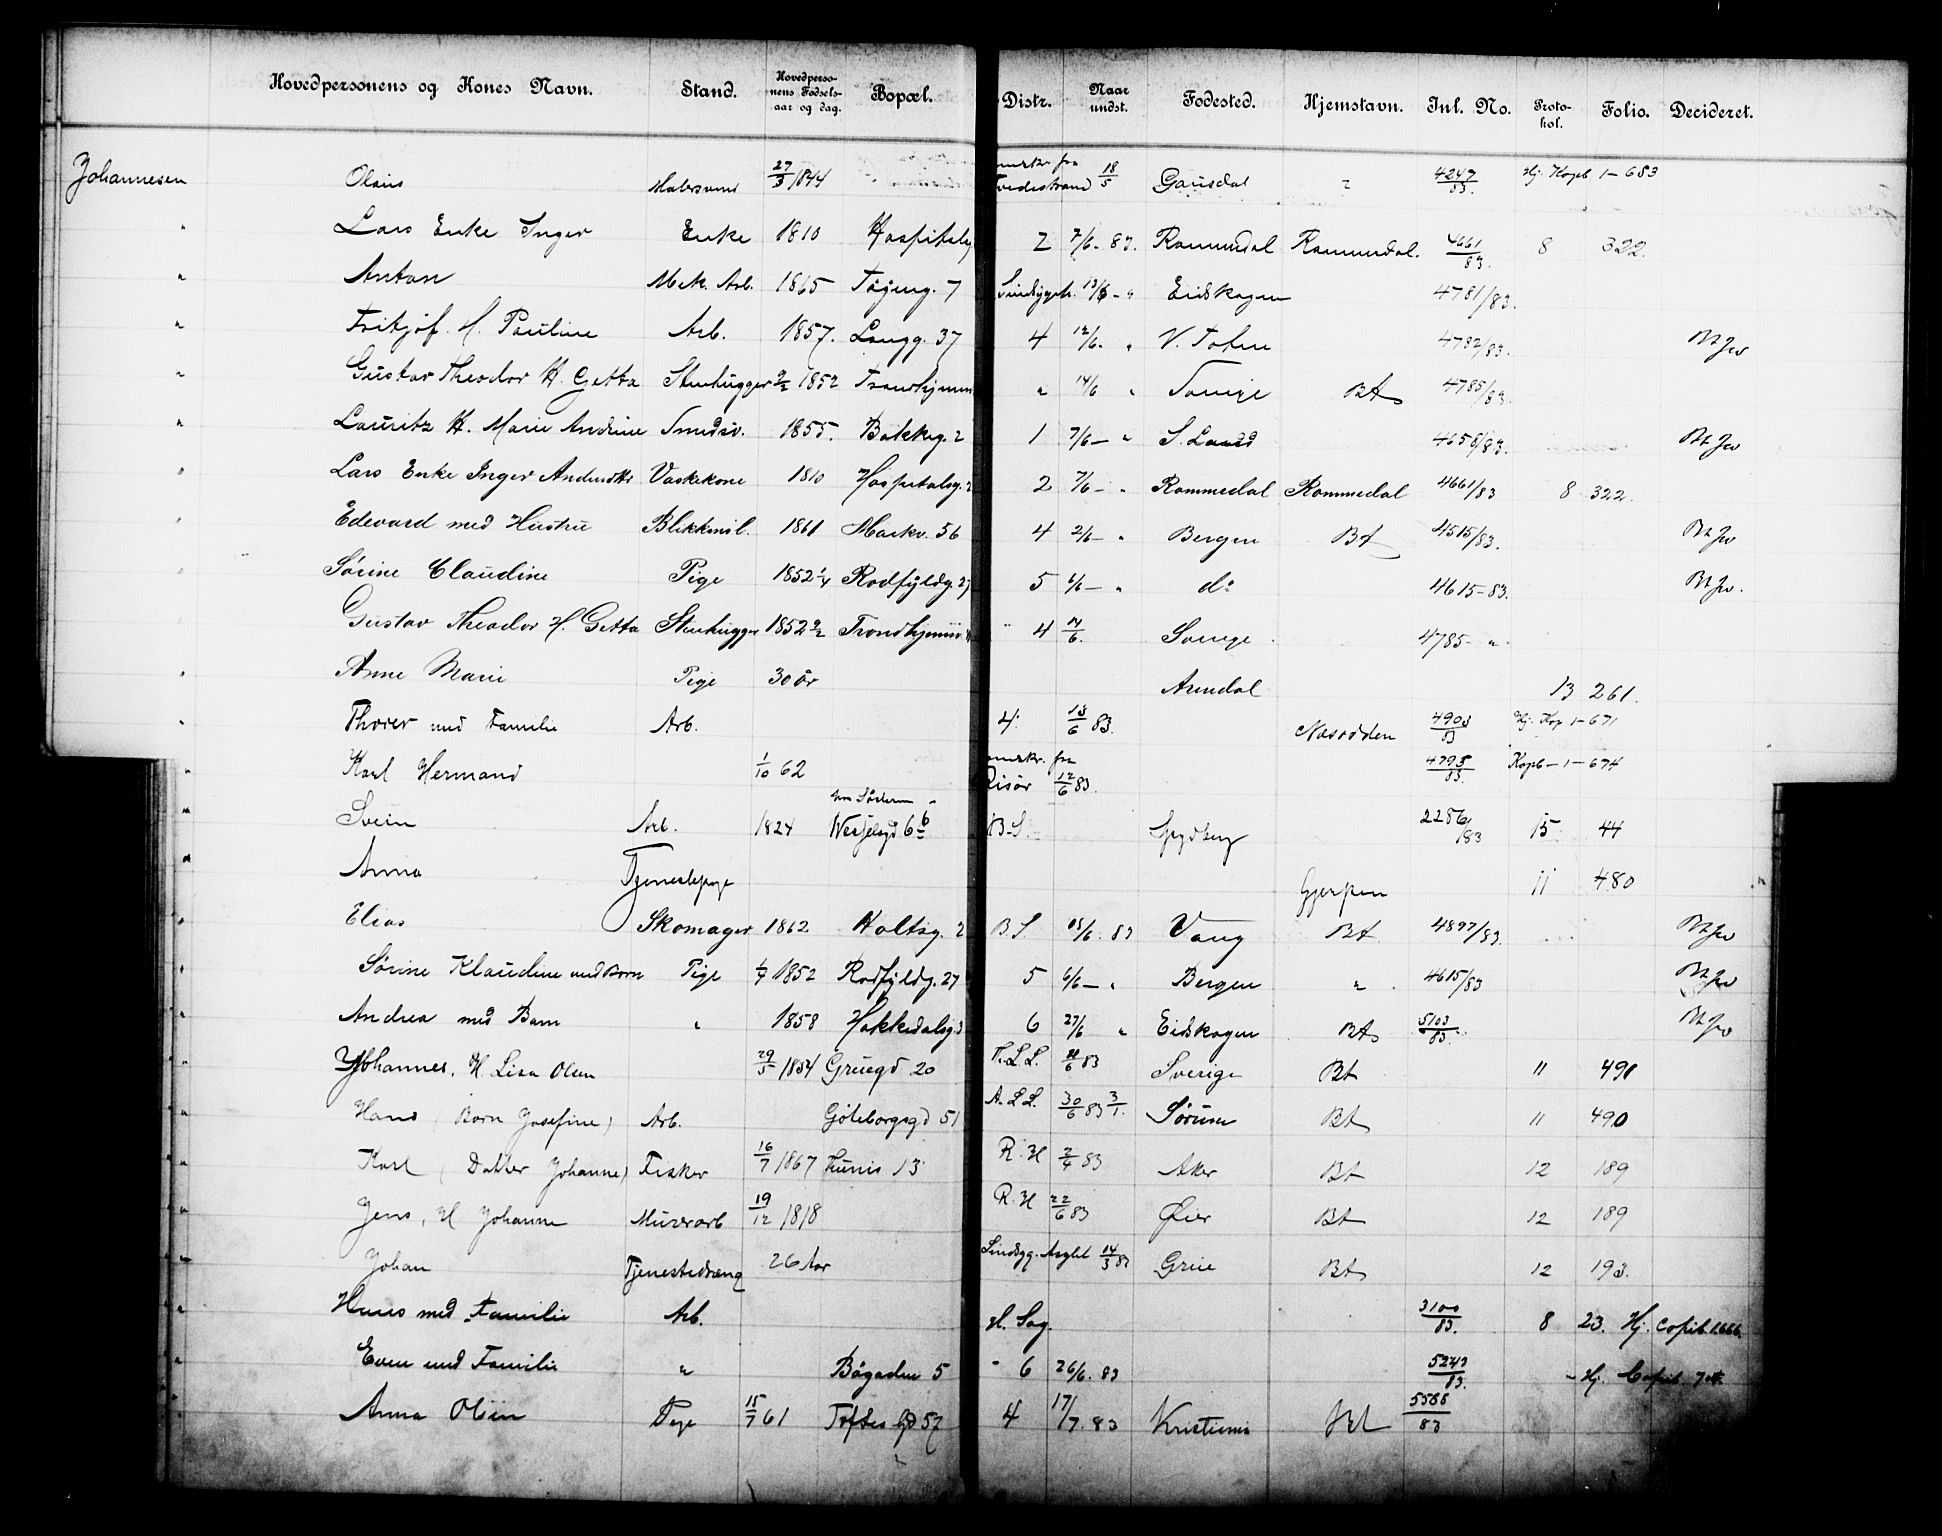 Hovedpersonens og Kones Navn. Stand. Hovedpersonens Fødselsaar og dag. Bopæl. Distr. Naar undst. Fødested. Hjemstavn. Inl. No. Protokol. Folio. Decideret.
Johannesen Olaus Malersvend 27/3 1844 fra Tvedestrand 18/5 Gausdal " 4247/83. Hj. Kopb 1-683
" Lars Enke Inger Enke 1810 Hospitalsg 2 7/6 - 83. Rommedal Rommedal. 4661/83. 8 322.
" Anton Mek. Arb. 1865 Tøjeng. 7 Sindsygeh. 13/6 - " Eidskogen 4781/83.
" Fritjof. H. Pauline Arb. 1857. Langg. 37 4 12/6. " V. Toten 4782/83. Bt Jw
" Gustav Theodor H. Getta Stenhugger 9/2 1852 Trondhjemsv " 14/6 " Sverige Bt 4785/83.
" Lauritz H. Marie Andrine Smedsv. 1855. Bakkeg. 2 1 7/6 - " S. Land 4658/83. Bt Jw
" Lars Enke Inger Andersdtr Vaskekone 1810 Hospitalsg. 2 2 7/6 - " Rommedal Rommedal 4661/83 8 322.
" Edevard med Hustru Blikkensl. 1861 Markv. 56 4 2/6 - " Bergen Bt 4515/83. Bt Jw
" Sørine Claudine Pige 1852 1/4 Rodfyldg. 27 5 6/6 - " do. 4615-83. Bt Jw.
Gustav Theodor H. Getta Stenhugger 1852 9/2 Trondhjemsv. " 4 14/6. Sverige 4785 - "
" Anne Marie Pige 30 år Arendal 13 261.
" Thorer med Familie Arb. 4. 13/6 83. Næsodden 4903/83 Hj. Kop 1-671
" Karl Hermand 1/10 62 fra Risør 12/6 83. 4795/83. Kopb-1-674
" Svein Arb. 1824 Wesselsgd 6 b B-S. Spydberg 2286/83 15 44
" Anna Tjenestepige Gjerpen 11 480
" Elias Skomager 1862 Holtsg. 2 B.S. 15/6. 83 Vang Bt 4897/83. Bt Jw
" Sørine Klaudine med Barn Pige 1/4 1852 Rodfyldg. 27 5 6/6 - " Bergen " 4615/83 Bt Jw
" Andrea med Barn " 1858 Hakkedalsg. 3 6 27/6 " Eidskogen Bt 5103/83. Bt Jw
" Johannes, H. Lisa Olsen 29/5 1854 Gruegd 20 Th. L. L. 21/6 83 Sverige Bt 11 491
" Hans (Barn Josefine) Arb. Göteborgsgd 51 A. L. L. 30/6 83 3/1. Sørum Bt 11 490
" Karl (Datter Johanne) Fisker 16/7 1867 Funis 13 R. H 2/4 83 Aker Bt 12 189
" Jens, H Johanne Murerarb 19/12 1818 R. H 22/6 83 Øier Bt 12 189
" Johan Tjenestedreng 26 Aar Sindsyg. Asylet 14/3 83 Grue Bt 12 193.
" Hans med Familie Arb. H. Sag. 3100/83. 8 23. Hj. Copib. 1.666.
" Even med Familie " Bøgaden 5 " 6 26/6. 83 5243/83. - Hj. Copib.
" Anna Olsen Pige 15/7 61 Toftes Gd 57 4 17/7. 83 Kristiania Bt 5568/83